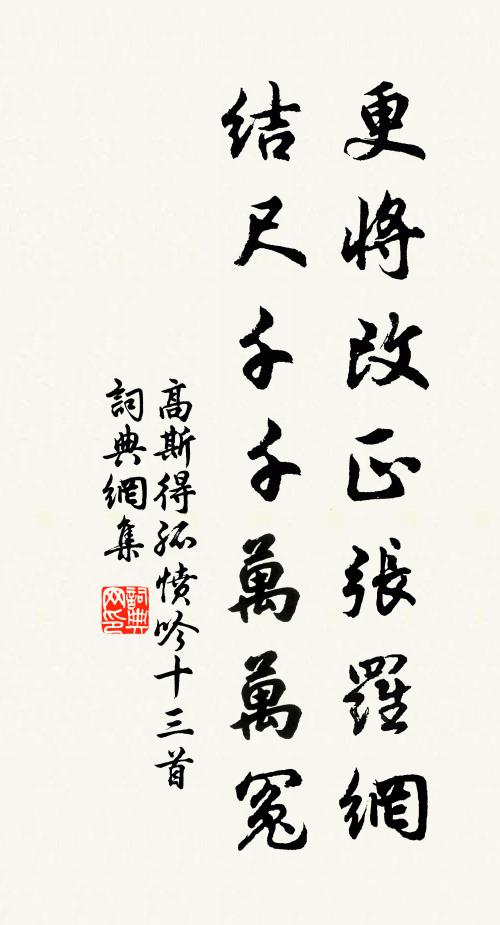 更將改正張羅網
結尺千千萬萬冤
高斯得孤憤吟十三首
詞典網集
詞典网印